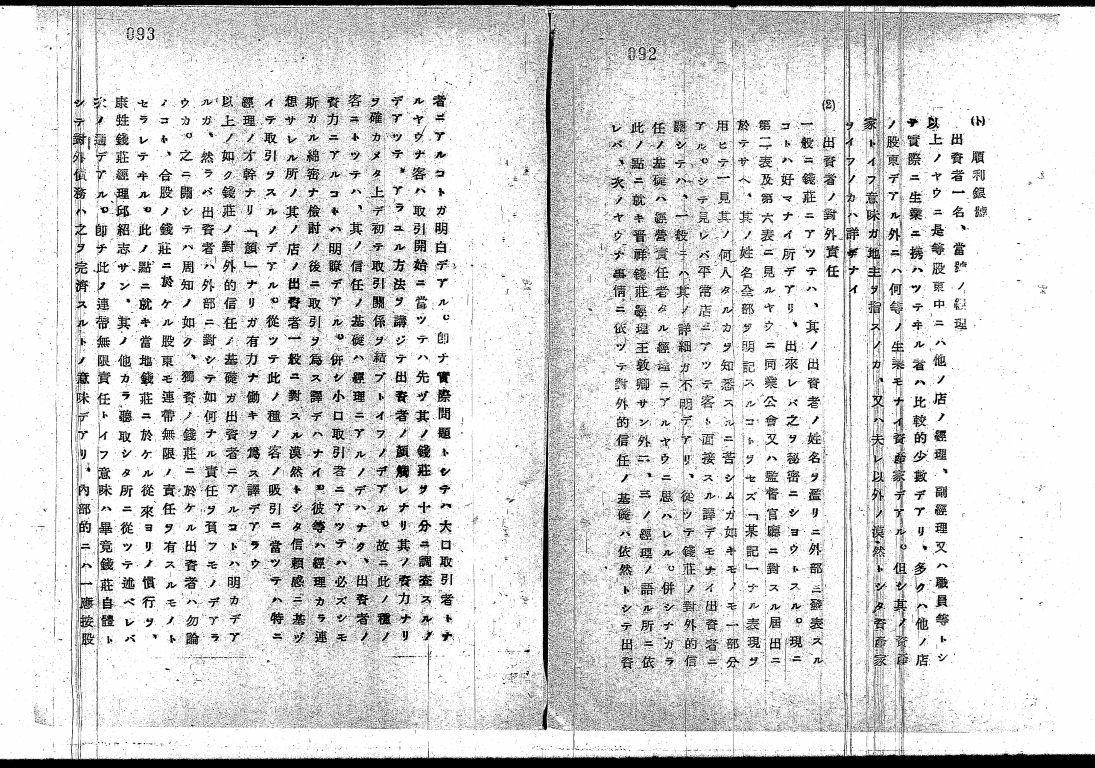 092
(ト) 順利銀號
出資者一名、當號ノ經理
以上ノヤウニ是等股東中ニハ他ノ店ノ經理、副經理又ハ職員等トシ
テ實際ニ生業ニ携ハツテヰル者ハ比較的少數デアリ、多クハ他ノ店
ノ股東デアル外ニハ何等ノ生業モナイ資產家デアル。但シ其ノ資產
家トイフ意味ガ地主ヲ指スノカ、又ハ夫レ以外ノ漠然トシタ資產家
ヲイフノカハ詳デナイ
(2) 出資者ノ對外責任
一般ニ錢莊ニアツテハ、其ノ出資者ノ姓名ヲ濫リニ外部ニ發表スル
コトハ好マナイ所デアリ、出來レバ之ヲ秘密ニシヨウトスル。現ニ
第二表及第六表ニ見ルヤウニ同業公會又ハ監督官廳ニ對スル屆出ニ
於テサヘ、其ノ姓名全部ヲ明記スルコトヲセズ「某記」ナル表現ヲ
用ヒテ一見其ノ何人タルカヲ知悉スルニ苦シムガ如キモノモ一部分
アル。シテ見レバ平常店ニアツテ客ト面接スル譯デモナイ出資者ニ
關シテハ、一般ニハ其ノ詳細ガ不明デアリ、從ツテ錢莊ノ對外的信
任ノ基礎ハ經營責任者タル經理ニアルヤウニ思ハレル。併シナガラ
此ノ點ニ就キ晉祥錢莊經理王敦卿サン外二、三ノ經理ノ語ル所ニ依
レバ、次ノヤウナ事情ニ依ツテ對外的信任ノ基礎ハ依然トシテ出資
093
者ニアルコトガ明白デアル。卽チ實際問題トシテハ大口取引者トナ
ルヤウナ客ハ取引開始ニ當ツテハ先ヅ其ノ錢莊ヲ十分ニ調査スルノ
デアツテ、アラユル方法ヲ講ジテ出資者ノ顏觸レナリ其ノ資力ナリ
ヲ確カメタ上デ初テ取引關係ヲ結ブトイフノデアル。故ニ此ノ種ノ
客ニトツテハ、其ノ信任ノ基礎ハ經理ニアルノデハナク、出資者ノ
資力ニアルコトハ明瞭デアル。併シ小口取引者ニアツテハ必ズシモ
斯カル綿密ナ檢討ノ後ニ取引ヲ爲ス譯デハナイ。彼等ハ經理カラ連
想サレル所ノ其ノ店ノ出資者一般ニ對スル漠然トシタ信賴感ニ基ヅ
イテ取引ヲスルノデアル。從ツテ此ノ種ノ客ノ吸引ニ當ツテハ特ニ
經理ノ才幹ナリ「顏」ナリガ有力ナ働キヲ爲ス譯デアラウ
以上ノ如ク錢莊ノ對外的信任ノ基礎ガ出資者ニアルコトハ明カデア
ルガ、然ラバ出資者ハ外部ニ對シテ如何ナル責任ヲ負フモノデアラ
ウカ。之ニ關シテハ周知ノ如ク、獨資ノ錢莊ニ於ケル出資者ハ勿論
ノコト、合股ノ錢莊ニ於ケル股東モ連帶無限ノ責任ヲ有スルモノト
セラレテヰル。此ノ點ニ就キ當地錢莊ニ於ケル從來ヨリノ慣行ヲ、
康甡錢莊經理邱紹志サン、其ノ他カラ聽取シタ所ニ從ツテ述ベレバ
次ノ通デアル。卽チ此ノ連帶無限責任トイフ意味ハ畢竟錢莊自體ト
シテ對外債務ハ之ヲ完濟スルトノ意味デアリ、內部的ニハ一應按股